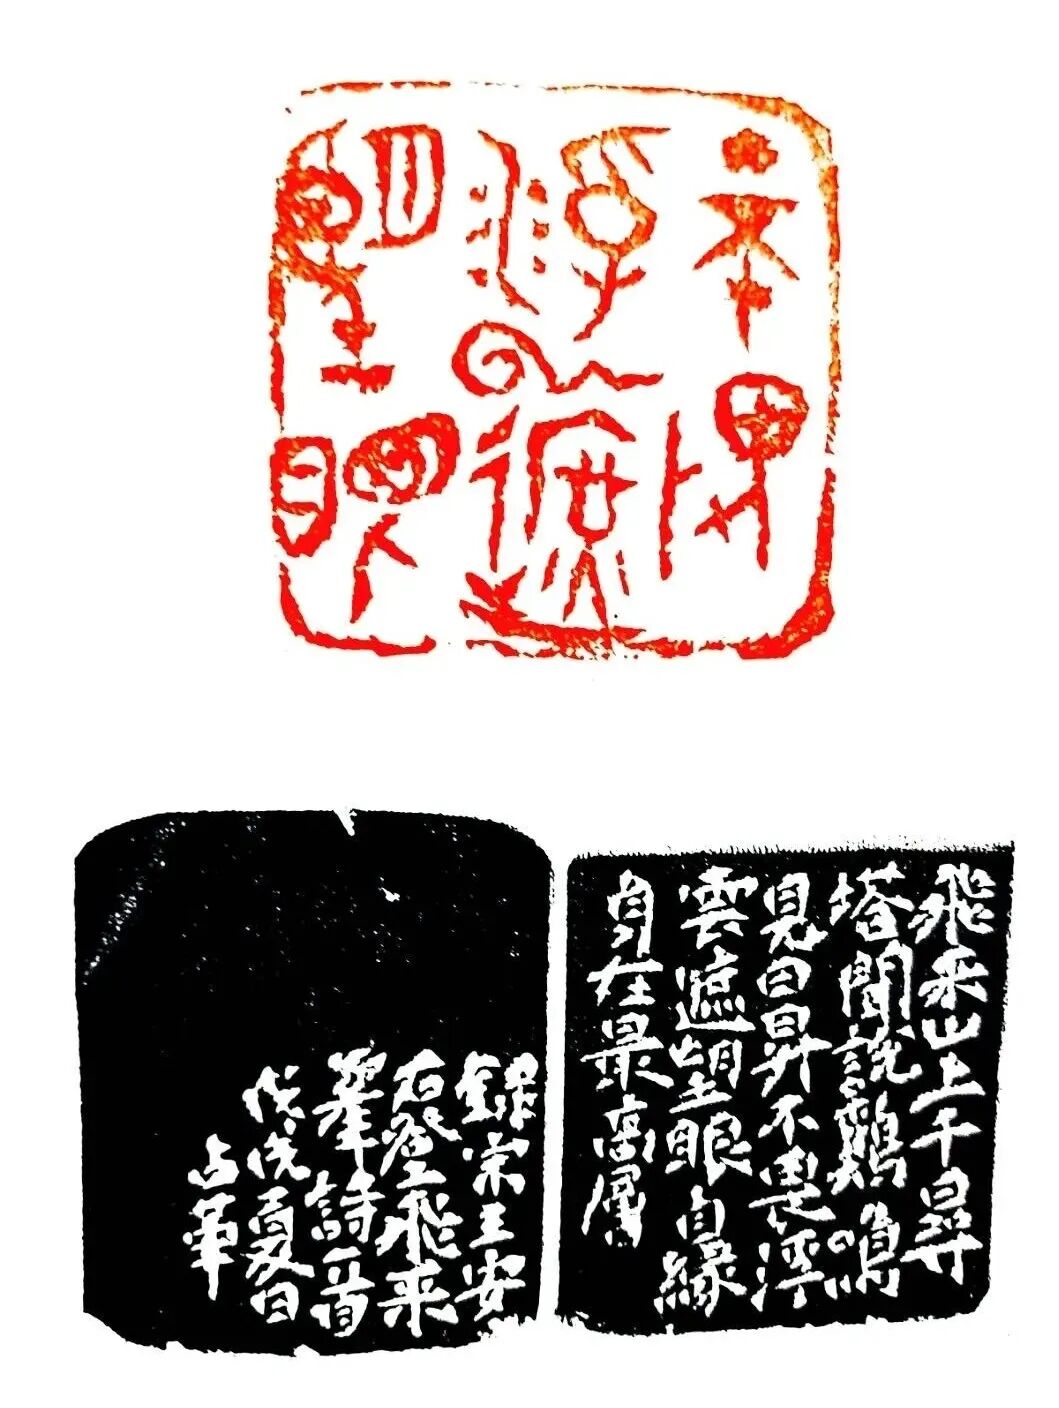 不畏
浮云遮
望眼
飛来山上千尋
塔聞說鷄鳴
見日昇不畏浮
雲遮望眼自緣
身在最高層
錄宋王安
石登飛来
峯詩一首
戊戌夏日